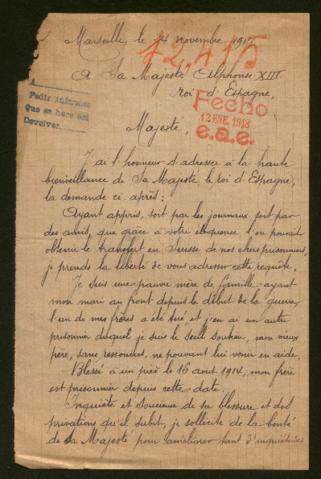 Marseille, le novembre 1917
72,415
A Sa Majesté Alphonse XIII
roi d'Espagne,
Pedir informes
Que se hace así
Devolver
Fecho
12 ENE. 1918
e.a.e.
Majesté,
J'ai l'honneur d'adresser à la haute
bienveillance de Sa Majesté le roi d'Espagne,
la demande ci après:
Ayant appris, soit par les journaux soit par
des amis, que grâce à votre éloquence l'on pouvait
obtenir le transfert en Suisse de nos chers prisonniers,
je prends la liberté de vous adresser cette requête.
Je suis une pauvre mère de famille ayant
mon mari au front depuis le début de la guerre,
l'un de mes frères a été tué et j'en ai un autre
prisonnier duquel je suis le seul soutien, mon vieux
père, sans ressources, ne pouvant lui venir en aide.
Blessé à un pied le 16 août 1914, mon frère
est prisonnier depuis cette date.
Inquiète et soucieuse de sa blessure et des
privations qu'il subit, je sollicite de la bonté
de Sa Majesté pour améliorer tant d'inquiétudes